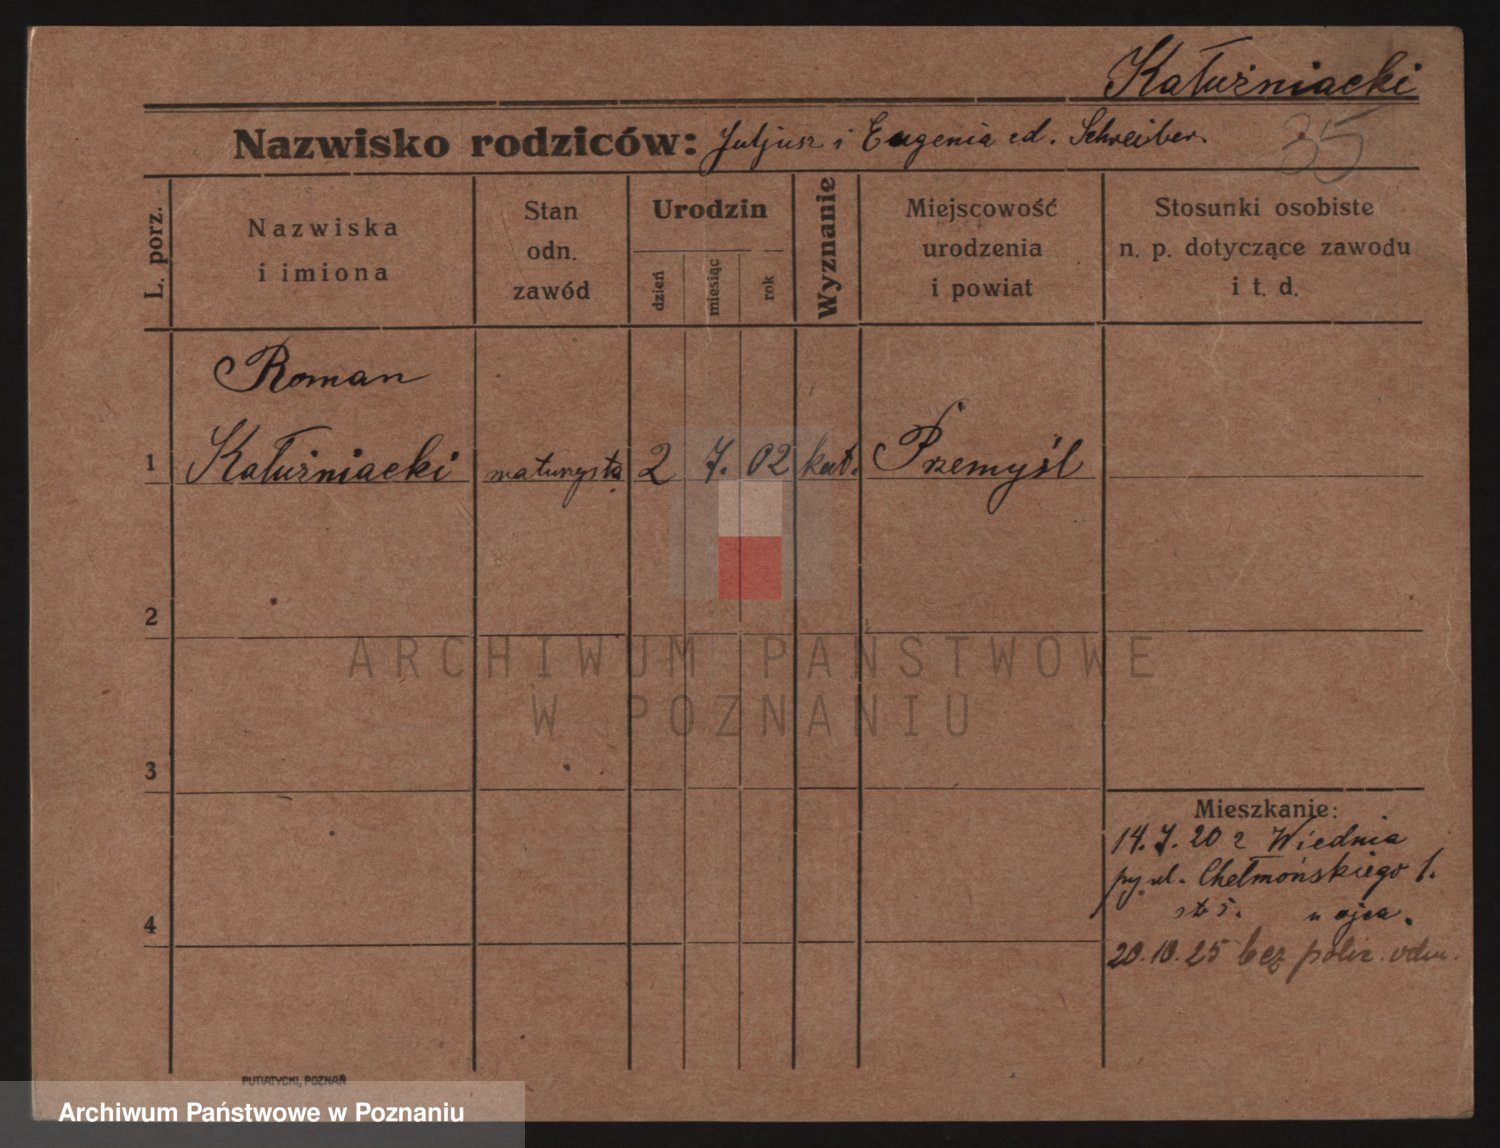 Kałużniacki
Nazwisko rodziców: Juljusz i Eugenia zd. Schreiber.
35
L. porz.
Nazwiska
i imiona
Stan
odn.
zawód
Urodzin
dzień
miesiąc
rok
Wyznanie
Miejscowość
urodzenia
i powiat
Stosunki osobiste
n. p. dotyczące zawodu
i t. d.
Roman
1 Kałużniacki maturysta 2 7. 02 kat. Przemyśl
2
ARCHIWUM PAŃSTWOWE
W POZNANIU
3
Mieszkanie:
14. 7. 20 z Wiednia
ul. Chełmońskiego 1.
u ojca.
4
20.10.25 bez
PUTIATYCKI, POZNAŃ
Archiwum Państwowe w Poznaniu